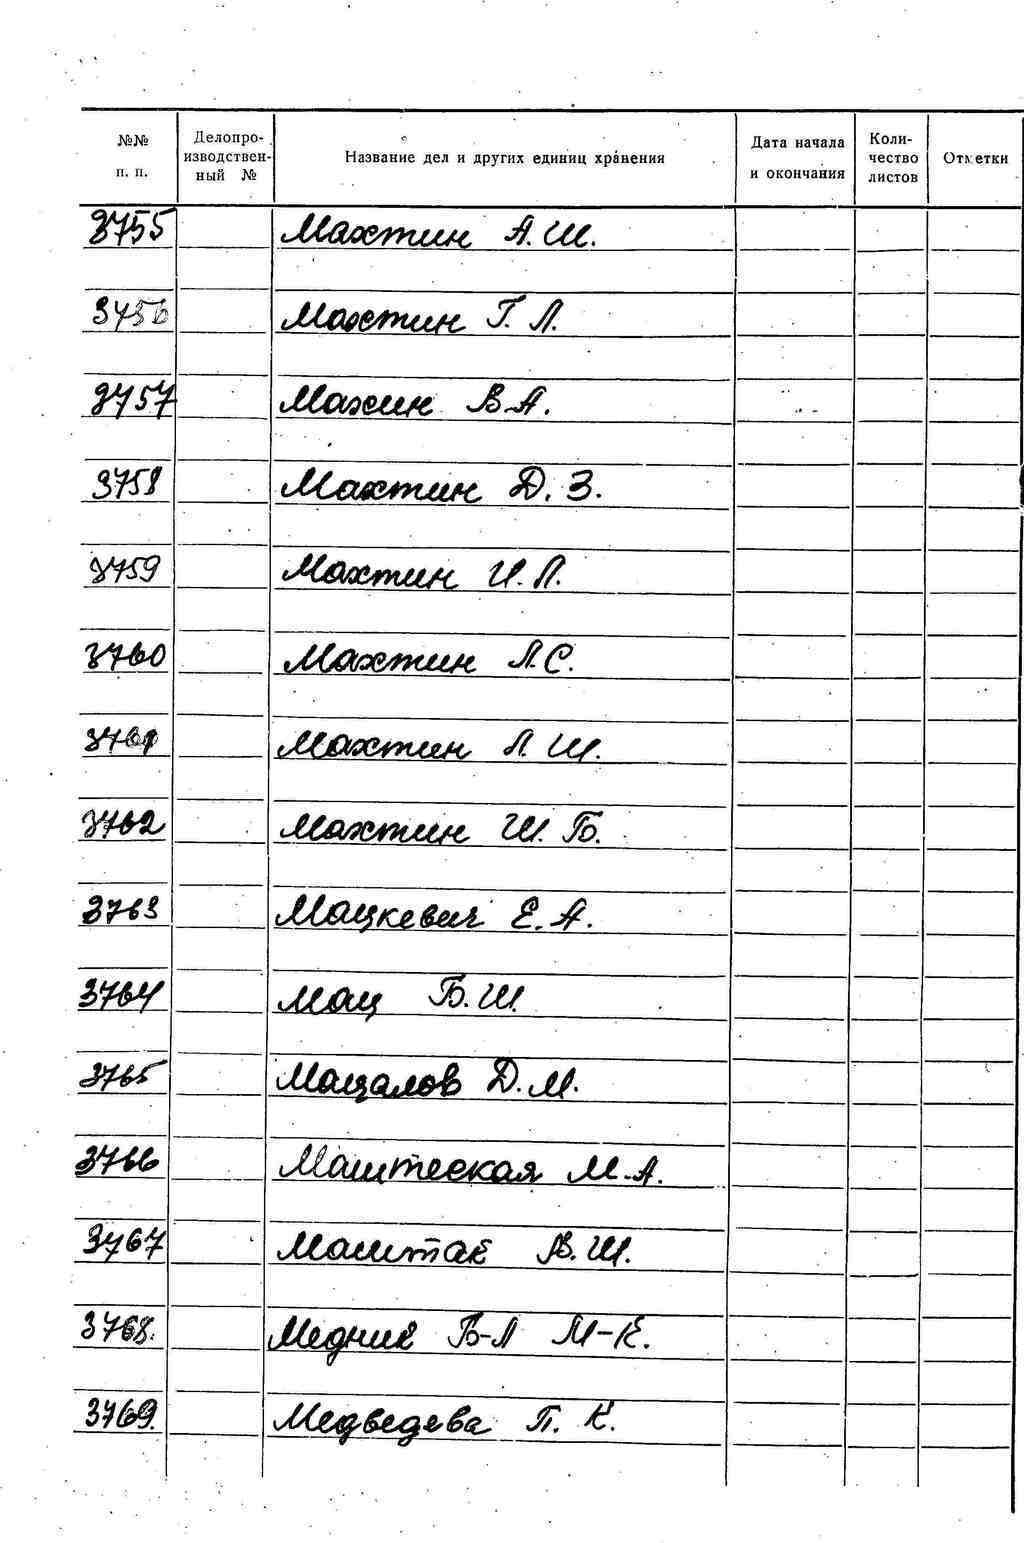 №№ п. п. Делопроизводственный № Название дел и других единиц хранения Дата начала и окончания Количество листов Отметки
3755 Махтин А. Ш.
3756 Махтин Г. Л.
3757 Махин В. А.
3758 Махтин Д. З.
3759 Махтин И. Л.
3760 Махтин Л. С.
3761 Махтин Л. Ш.
3762 Махтин Ш. Б.
3763 Мацкевич Е. А.
3764 Мац Б. Ш.
3765 Мацалов Д. М.
3766 Маштеская М. А.
3767 Маштак В. Ш.
3768. Медник Б-Л М-К.
3769. Медведева П. К.